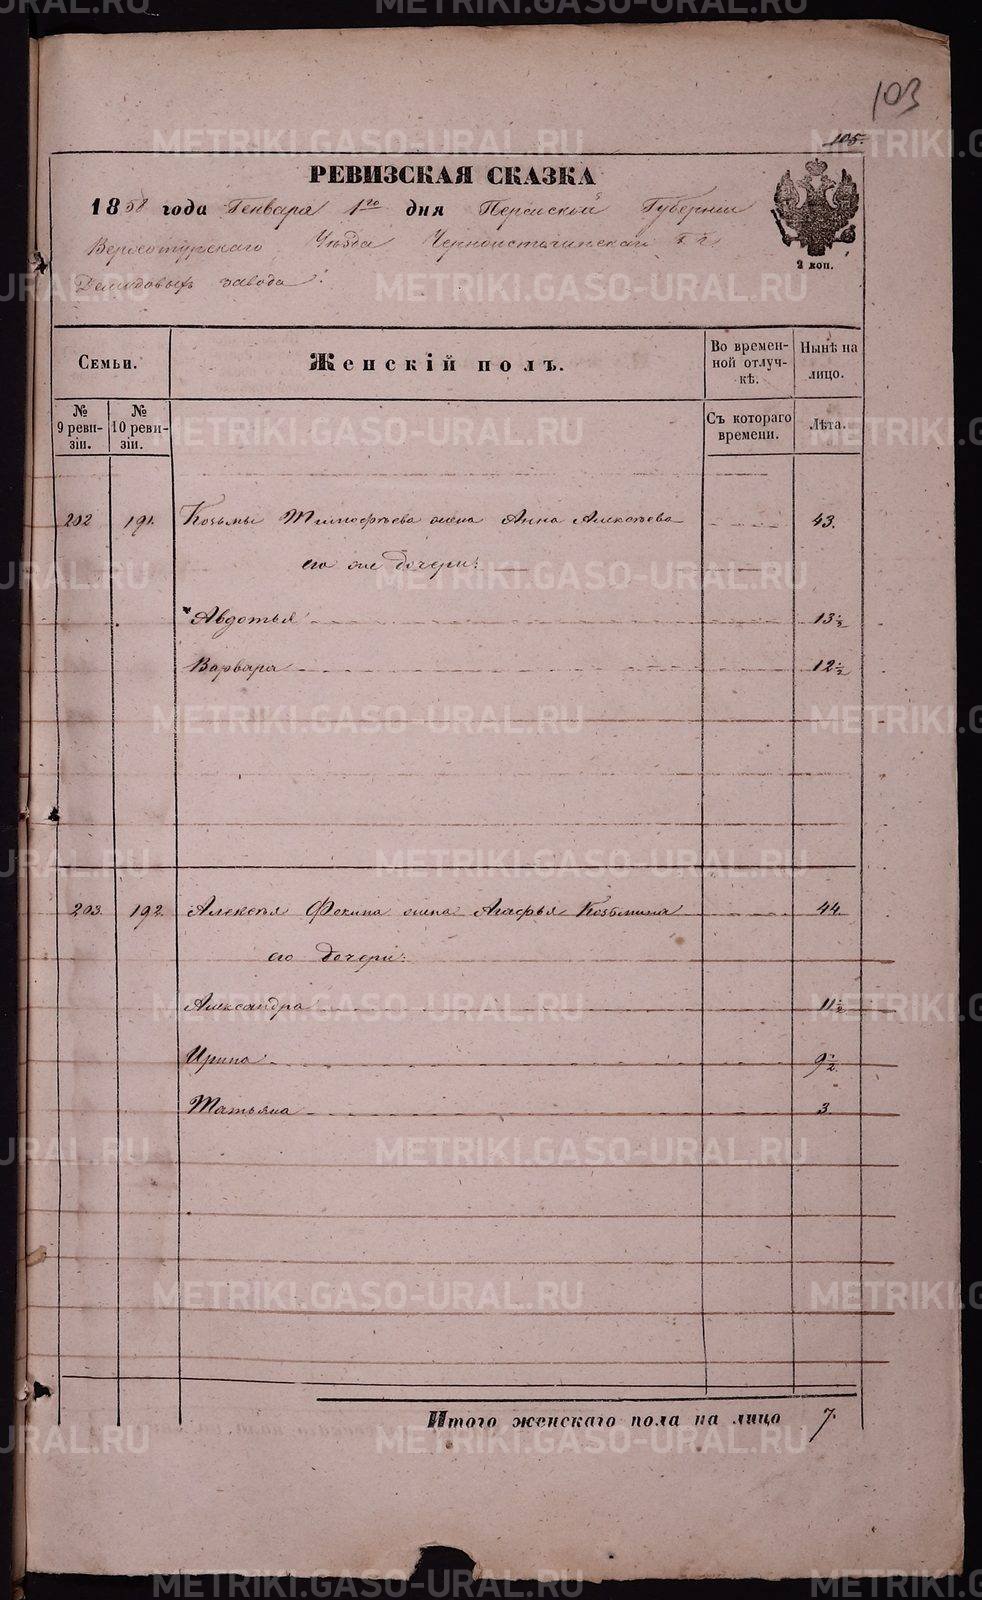 103
105.
РЕВИЗСКАЯ СКАЗКА
1858 года Генваря 1го дня Пермской Губернии
Верхотурскаго Уѣзда Черноисточинскаго Г. г.
Демидовыхъ завода.
2 коп.
Семьи.
Женскій полъ.
Во временной отлучкѣ.
Нынѣ на лицо.
№ 9 ревизіи.
№ 10 ревизіи.
Съ котораго времени.
Лѣта.
202 191. Козьмы Тимофѣева жена Анна Алексѣева 43.
его же дочери:
Авдотья 13 1/2
Варвара 12 1/2
203. 192. Алексѣя Фокина жена Агафья Козьмина 44.
его дочери:
Александра 11 1/2
Ирина 9 1/2
Татьяна 3.
Итого женскаго пола на лицо 7.
METRIKI.GASO-URAL.RU